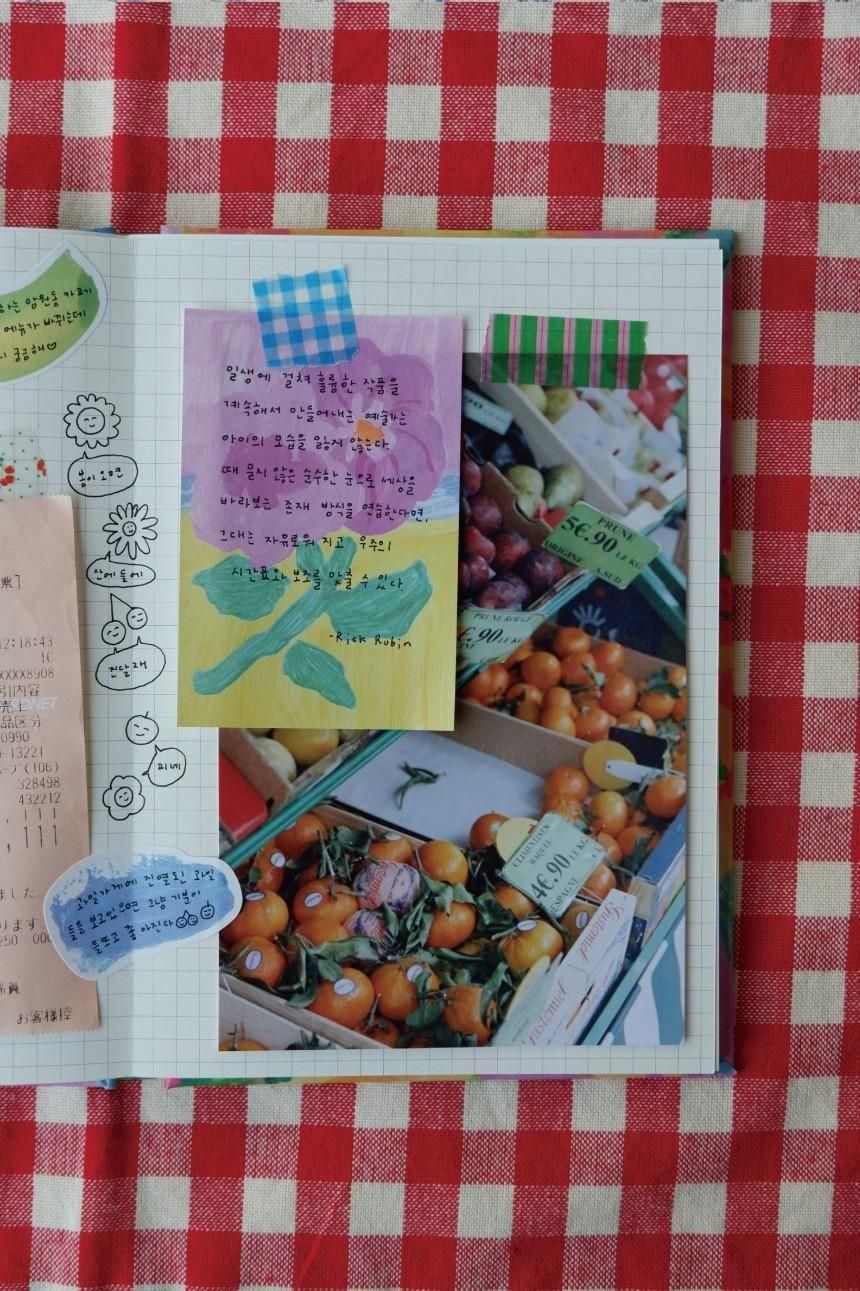 하는 망원동 카페
메뉴가 바뀌는데
궁금해♡
봄이 오면
산에 들에
진달래
피네
票]
12:18:43
1C
XXXX8908
引内容
売上
品区分
0990
0-13221
ループ(106)
328498
432212
,111
,111
ました。
ります。
250 000
係員
お客様控
과일가게에 진열된 과일
들을 보고있으면 그냥 기분이
들뜨고 좋아진다
일생에 걸쳐 훌륭한 작품을
계속해서 만들어내는 예술가는
아이의 모습을 잃지 않는다.
때 묻지 않은 순수한 눈으로 세상을
바라보는 존재 방식을 연습한다면,
그대는 자유로워 지고 우주의
시간표와 보조를 맞출 수 있다.
-Rick Rubin
PRUNE
5€.90 LE KG
ORIGINE A.SUD
PRUNE ROUGE
€.90 LE KG
CLEMENTINES
4€.90 LE KG
ESPAGNE